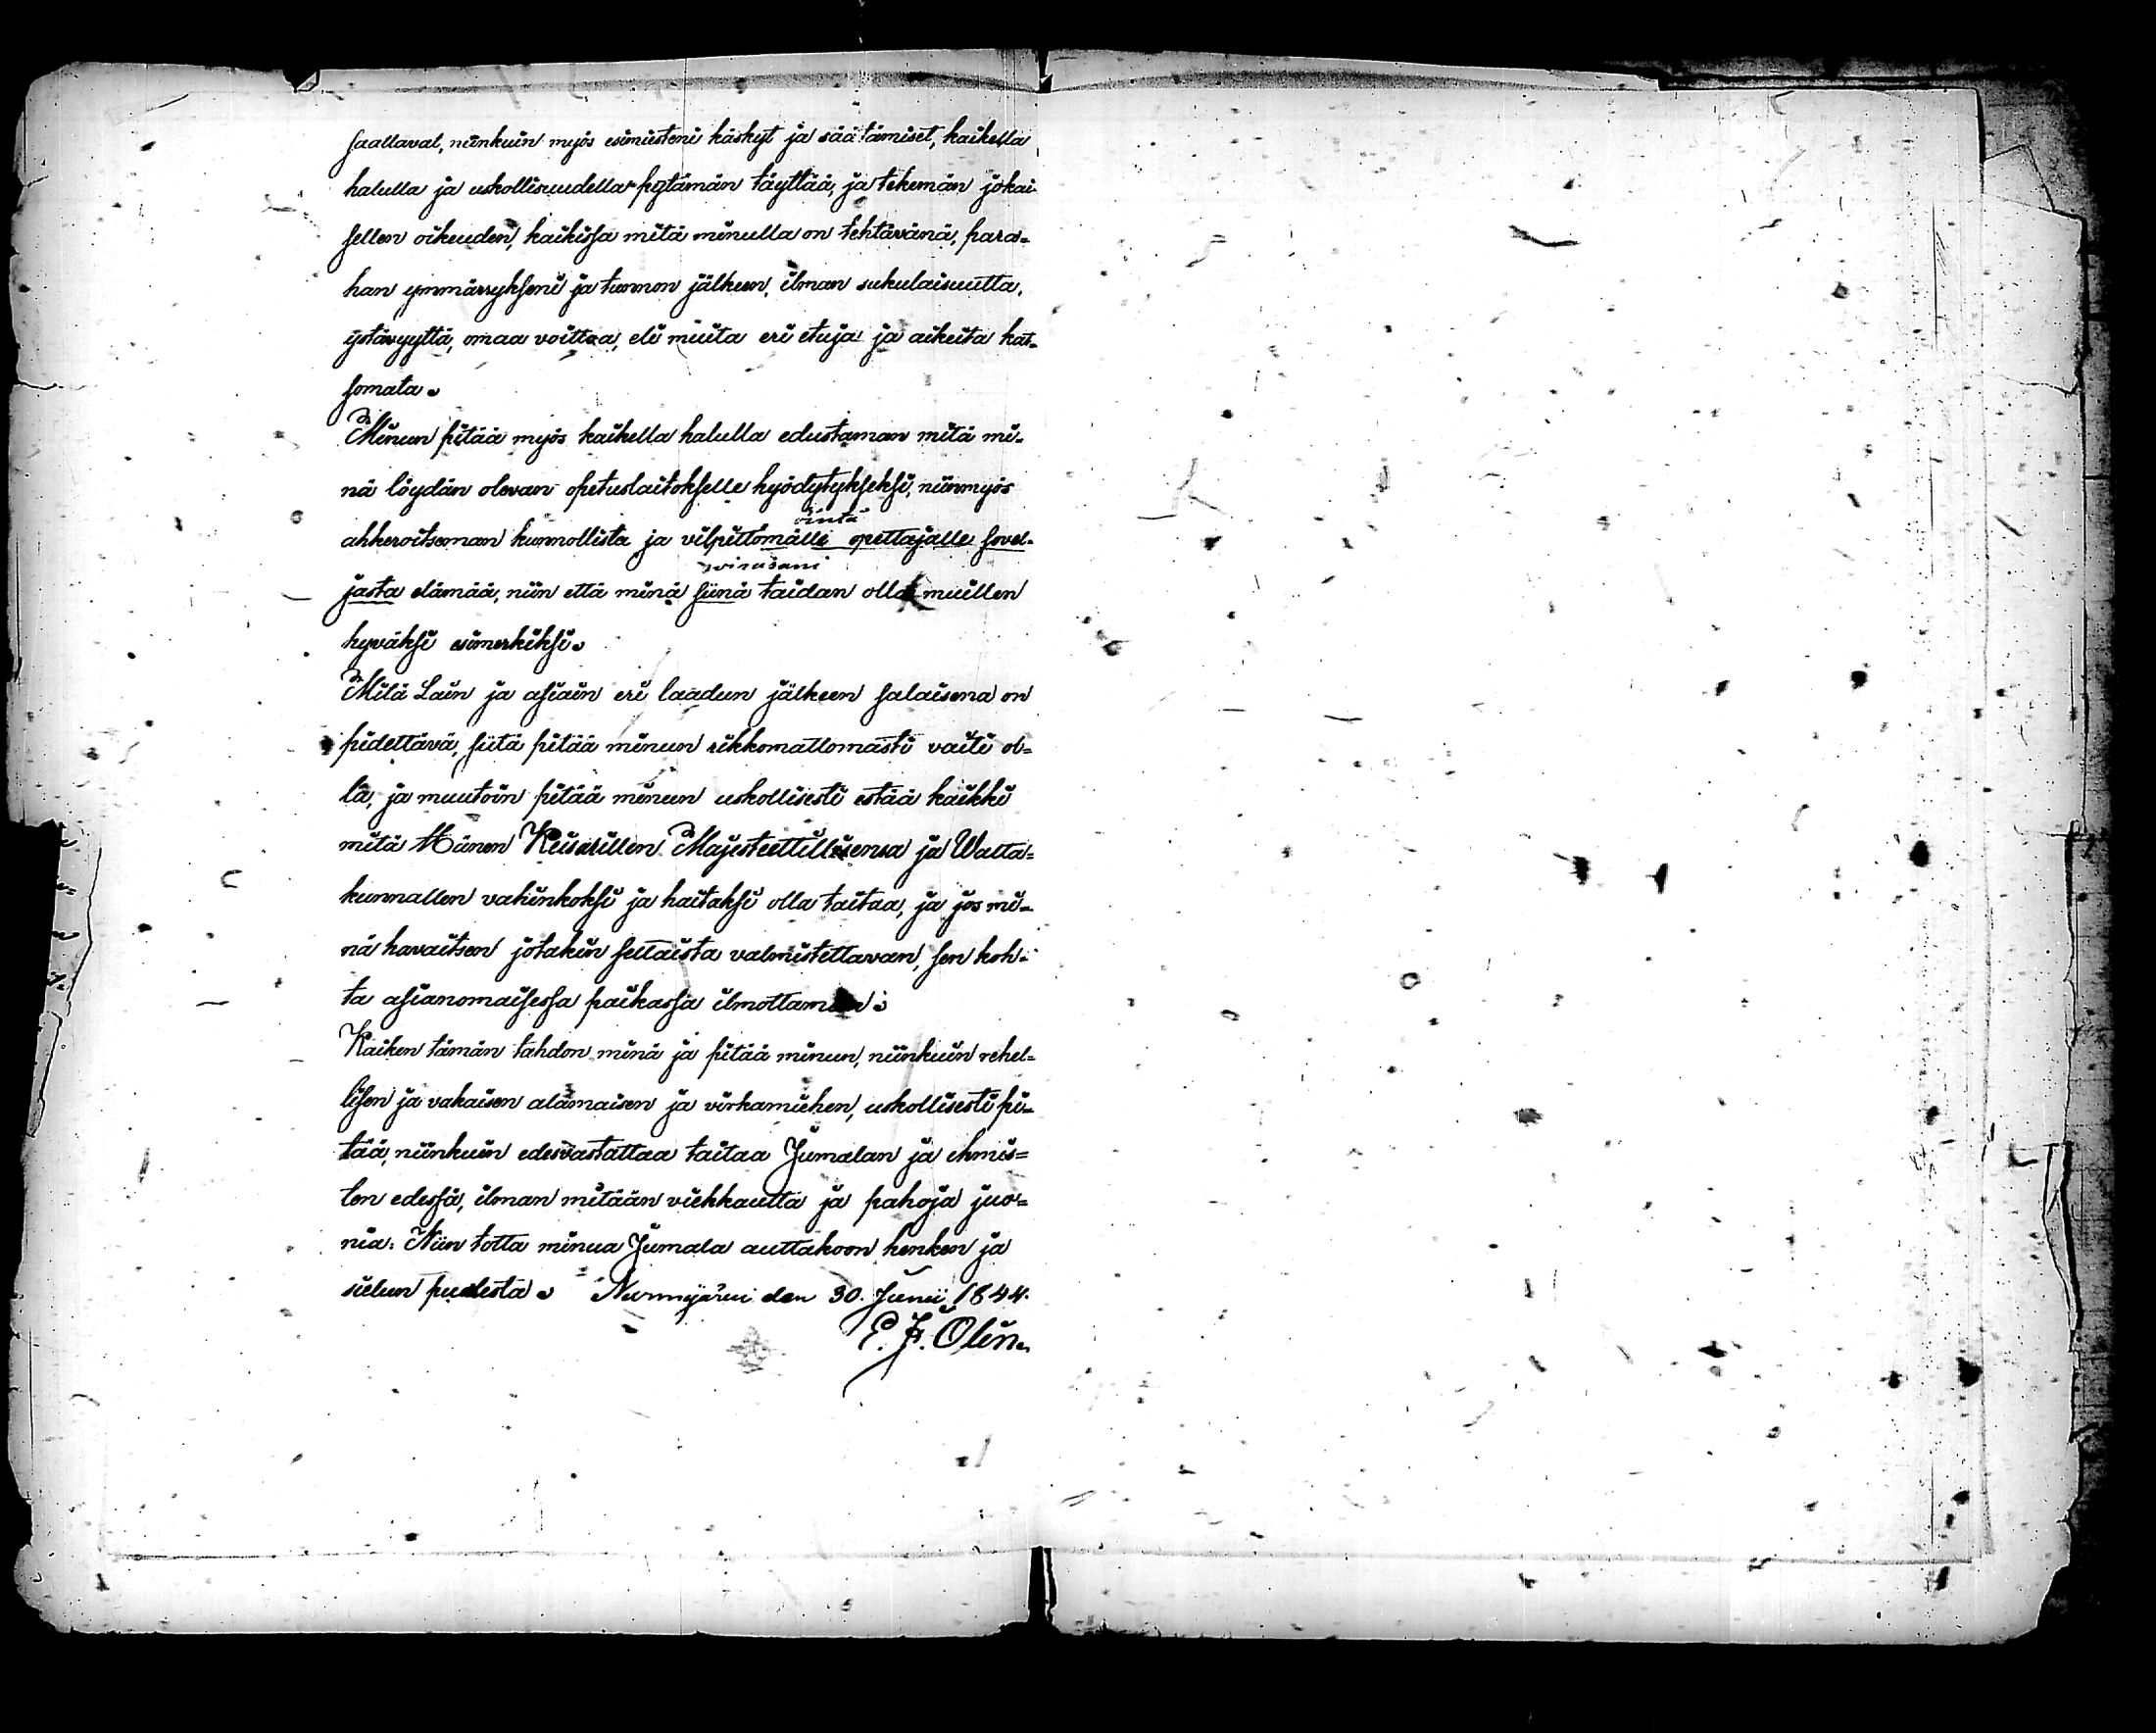 saattavat, niinkuin myös esimiesteni käskyt ja säätämiset, kaikella
halulla ja uskollisuudella pyytämän täyttää, ja tekemän jokai-
sellen oikeuden, kaikissa mitä minulla on tehtävänä, para-
han ymmärrykseni ja tunnon jälkeen, ilman sukulaisuutta,
ystävyyttä, omaa voittoa, eli muita eri etuja ja aikeita kat-
somata.
Minun pitää myös kaikella halulla edustaman mitä mi-
nä löydän olevan opetuslaitokselle hyödytykseksi, niinmyös
ointa
ahkeroitseman kunnollista ja vilpittömälle opettajalle sovel-
virasani
jasta elämää, niin että minä siinä taidan olla muillen
hyväksi esimerkiksi.
Mitä Lain ja asiain eri laadun jälkeen salaisena on
pidettävä, siitä pitää minun rikkomattomasti vaiti ol-
la, ja muutoin pitää minun uskollisesti estää kaikki
mitä Hänen Keisarillen Majesteettillisensa ja Walta-
kunnallen vahinkoksi ja haitaksi olla taitaa, ja jos mi-
nä havaitsen jotakin sellaista valmistettavan, sen koh-
ta asianomaisessa paikassa ilmottaman.
Kaiken tämän tahdon minä ja pitää minun, niinkuin rehel-
lisen ja vakaisen alamaisen ja virkamiehen, uskollisesti pi-
tää, niinkuin edesvastattaa taitaa Jumalan ja ihmis-
ten edessä, ilman mitään viekkautta ja pahoja juo-
nia: Niin totta minua Jumala auttakoon henken ja
sielun puolesta. Nurmijärvi den 30. Junii 1844.
E. F. Olin.